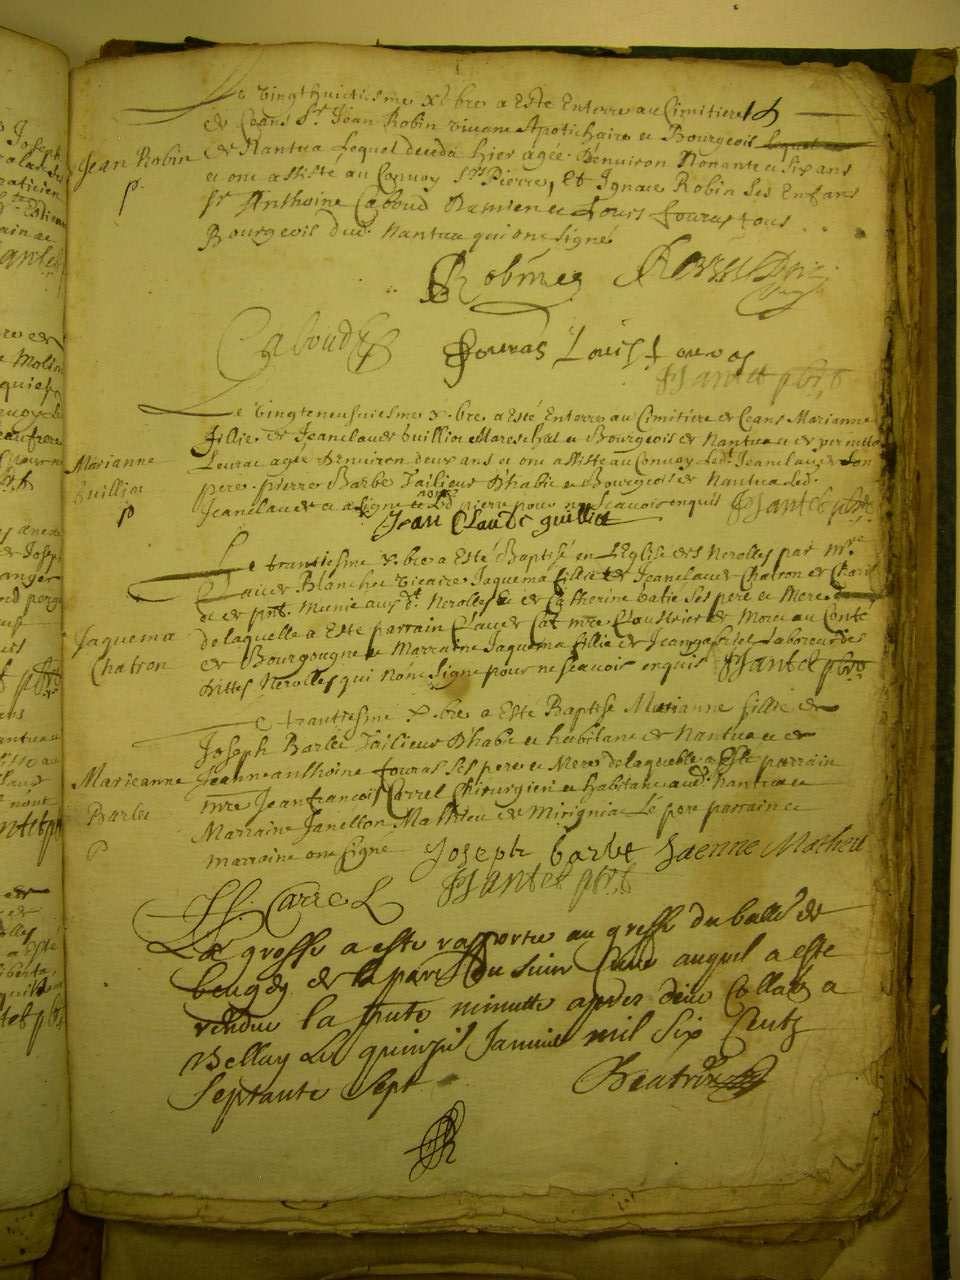 Le vingthuictiesme Xbre a Esté Enterré au Cimitiere
de Ceans Sr. Jean Robin vivant Apotichaire et Bourgeois
Jean Robin
de Nantua Lequel deceda hier agée D'environ Nonante et six ans
et ont assisté au Convoy Srs Pierre, Et Ignace Robin ses Enfans
Sr Anthoine Caboud Damien et Louis Jouras tous
Bourgeois dud. Nantua qui ont signé
Robin
Caboud
Jouras Louis Jouras
Jantet pbre
Le vingtneufuiesme Xbre a Esté Enterré au Cimitiere de Ceans Marianne
fillie de Jeanclaude Guilliot Mareschal et Bourgeois de Nantua et de pernette
Marianne
Guilliot
agée D'environ deux ans et ont assisté au Convoy led. Jeanclaude son
pere, pierre Barbe Tailieur D'habit et Bourgeois de Nantua Led.
Jeanclaude a signé et Led. pierre non pour ne sçavoir enquis Jantet pbre
Jean Claude guilliot
Le trantiesme Xbre a Esté Baptisé en L'Eglise des Nerolles par mre
Claude Blanchet vicaire Jaquema fillie de Jeanclaude Chatron de
et de pnt. Munie aux dt. Nerolles et de Catherine batie ses pere et Mere
Jaquema
Chatron
de laquelle a Esté parrain Claude Cat mre Cloustrier de Mou au Conté
de Bourgougne et Marraine Jaquema fillie de Jean Jantet Laboureur des
dittes Nerolles qui n'ont signé pour ne sçavoir enquis Jantet pbre
Le trantiesme Xbre a Esté Baptisé Marianne fillie de
Joseph Barbe Tailieur D'habit et habitant de Nantua et de
Marieanne
Barbe
Jeanneanthoine Jouras ses pere et Mere de laquelle a Esté parrain
mre Jeanfrancois Carrel Chirurgien et habitant aud. Nantua et
Marraine Janellon Mathieu de Mirignia Le pere parrain et
marraine ont signé Joseph barbe Mathieu
Jantet pbre
Carrel
La grosse a esté rapportée au greffe du balliage de
beugey de la part du sieur Curé auquel a esté
rendue la pnte minutte apres deue Collaon a
Belley Le quinze Janvier mil six Centz
septante sept